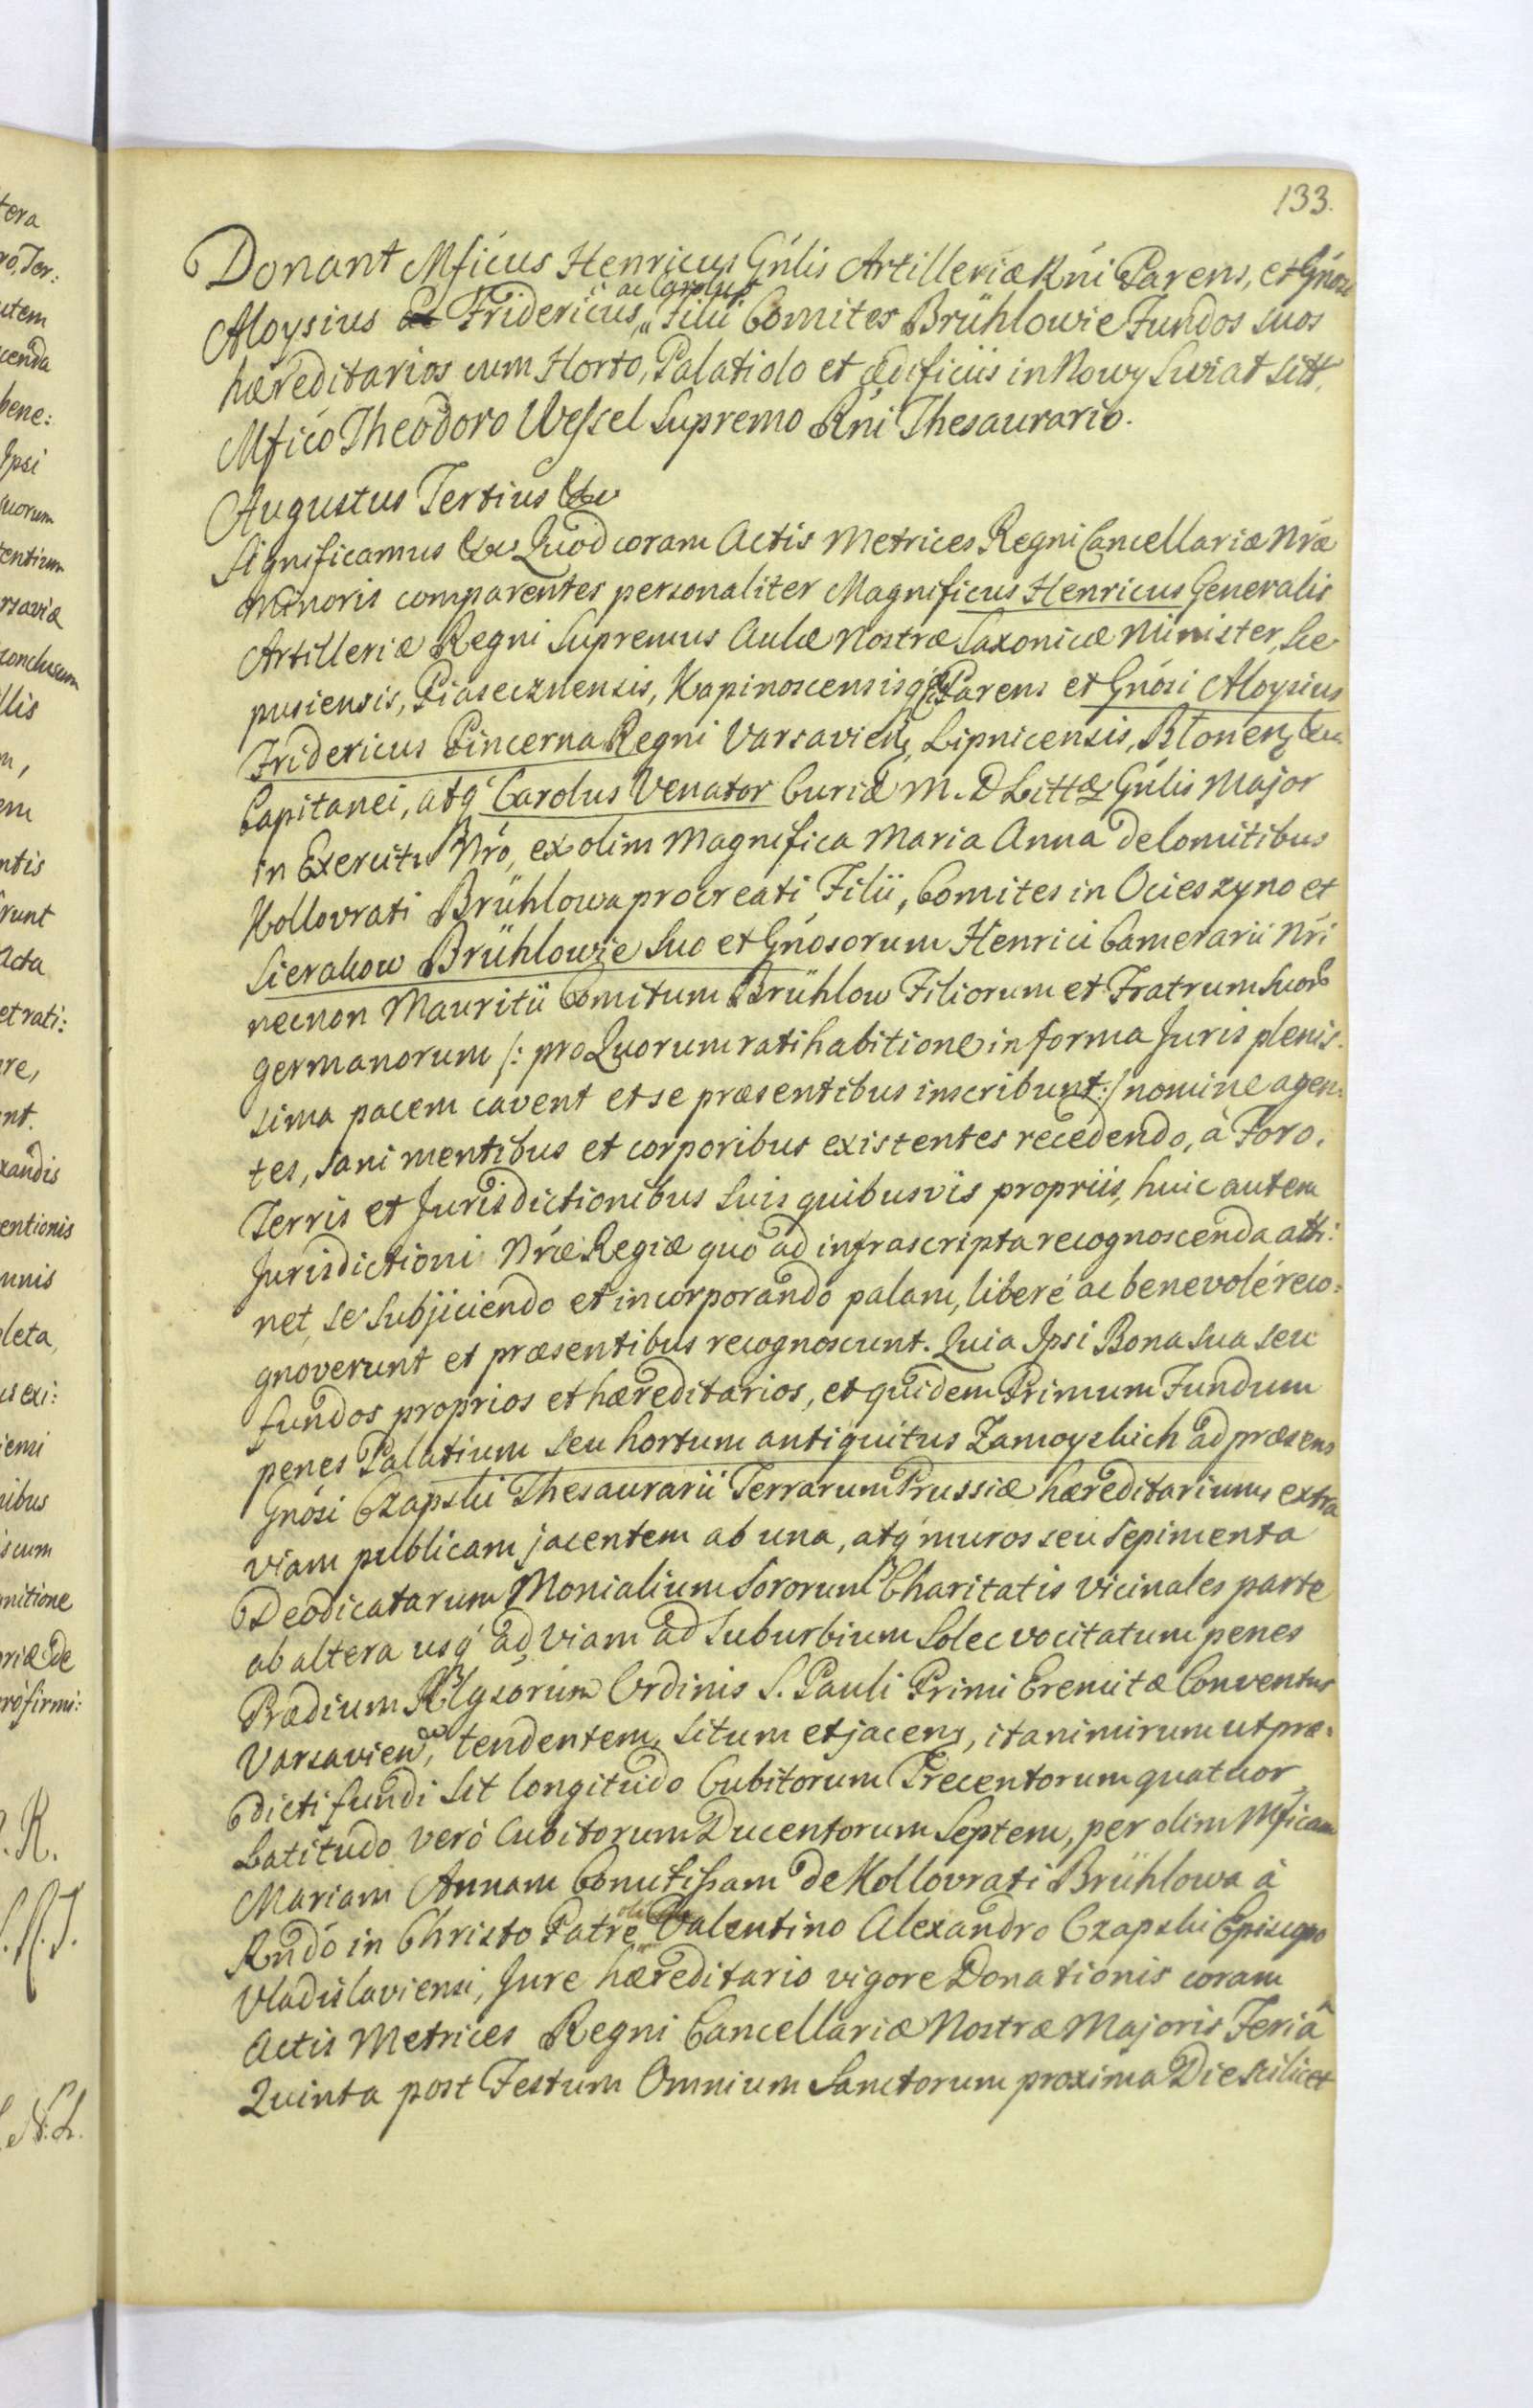 133.
Donant Mficus Henricus Gńlis Artilleriæ Rńi Parens, et Gńosi
ac Carolus
Aloysius Fridericus, Filii Comites Brühlowie Fundos suos
hæreditarios cum Horto, Palatiolo et ædificiis in Nowy Swiat sitt.
Mfico Theodoro Wessel Supremo Rńi Thesaurario.
Augustus Tertius &c
Significamus &c Quod coram Actis Metrices Regni Cancellariæ Nræ
Minoris comparentes personaliter Magnificus Henricus Generalis
Artilleriæ Regni Supremus Aulæ Nostræ Saxonicæ Minister, Sce
pusiensis, Piasecznensis, Kapinoscensis Parens et Gńosi Aloysius
Fridericus Pincerna Regni Varsavien, Lipnicensis, Błonen &c
Capitanei, atq' Carolus Venator Curiæ M. D Litt Gńlis Major
in Exercitu Nro, ex olim Magnifica Maria Anna De Comitibus
Kollovrati Brühlowa procreati Filii, Comites in Ocieszyno et
Sierakow Brühlowie Suo et Gńosorum Henrici Camerarii Nri
necnon Mauritii Comitum Brühlow Filiorum et Fratrum Suor
germanorum /: pro Quorum ratihabitione in forma Juris plenis-
sima pacem cavent et se præsentibus inscribunt :/ nomine agen:
tes, sani mentibus et corporibus existentes recedendo, à Foro,
Terris et Jurisdictionibus Suis quibusvis propriis, huic autem
Jurisdictioni Nræ Regiæ quo ad infrascripta recognoscenda atti:
net, se subjiciendo et incorporando palam, liberé ac benevolé reco:
gnoverunt et præsentibus recognoscunt. Quia Ipsi Bona sua seu
fundos proprios et hæreditarios, et quidem Primum Fundum
penes Palatium seu hortum antiquitus Zamoyskich ad præsens
Gńosi Czapski Thesaurarii Terrarum Prussiæ hæreditarium, extra
viam publicam jacentem ab una, atq' muros seu sepimenta
Deodicatarum Monialium Sororum Charitatis vicinales parte
ab altera usq' ad viam ad Suburbium Solec vocitatum penes
Prædium Rlgsorum Ordinis S. Pauli Primi Eremitæ Conventus
Varsavien, tendentem, situm et jacens, ita nimirum ut præ-
dicti fundi sit longitudo Cubitorum Trecentorum quatuor,
Latitudo veró Cubitorum Ducentorum Septem, per olim Mficam
Mariam Annam Comitissam De Kollovrati Brühlowa à
Rńdo in Christo Patre Valentino Alexandro Czapski Episcopo
Vladislaviensi, Jure hæreditario vigore Donationis coram
Actis Metrices Regni Cancellariæ Nostræ Majoris Feriâ
Quinta post Festum Omnium Sanctorum proxima Die scilicet